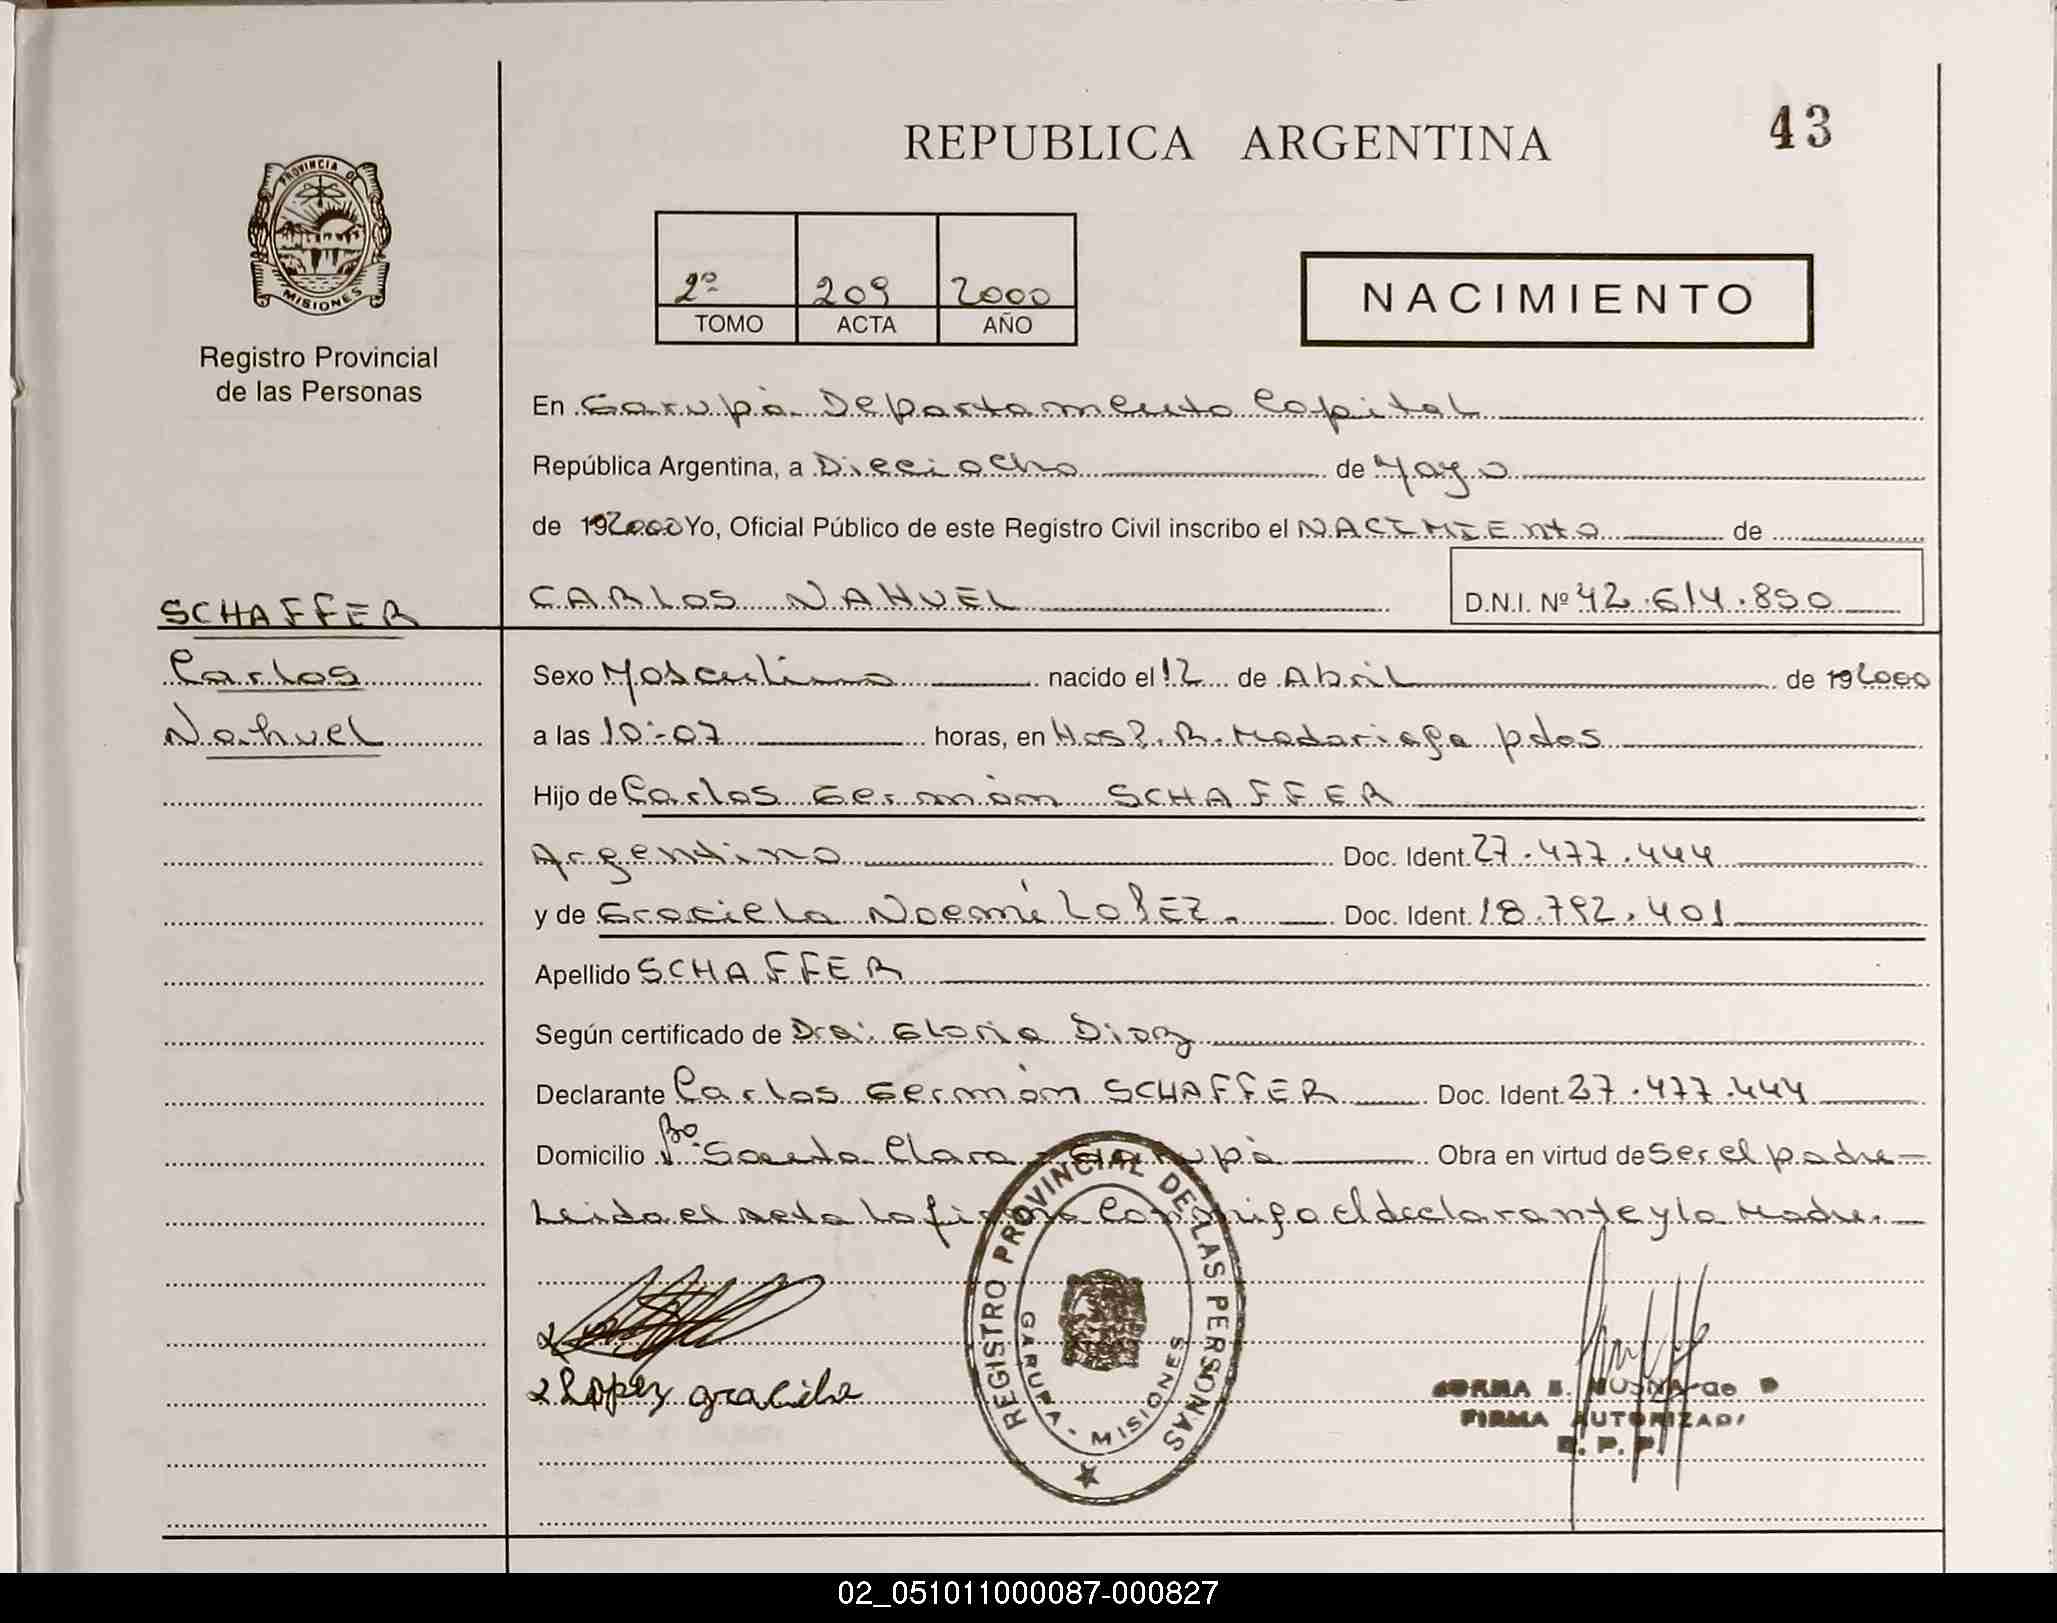 REPUBLICA ARGENTINA
43
PROVINCIA DE
MISIONES
Registro Provincial
de las Personas
2º 209 2000
TOMO ACTA AÑO
NACIMIENTO
En Garupá Departamento Capital
República Argentina, a Dieciocho de Mayo
de 192000 Yo, Oficial Público de este Registro Civil inscribo el NACIMIENTO de
SCHAFFER
CARLOS NAHUEL D.N.I. Nº 42.614.850
Carlos
Sexo Masculino nacido el 12 de Abril de 192000
Nahuel
a las 10:07 horas, en Hosp. R. Madariaga pdas
Hijo de Carlos Germán SCHAFFER
Argentino Doc. Ident. 27.477.444
y de Graciela Noemí LOPEZ. Doc. Ident. 18.792.401
Apellido SCHAFFER
Según certificado de Dra: Gloria Diaz
Declarante Carlos Germán SCHAFFER Doc. Ident. 27.477.444
Domicilio Bº Santa Clara - Garupá Obra en virtud de ser el padre
Leida el acta la firma conmigo el declarante y la Madre.
Lopez graciela
REGISTRO PROVINCIAL DE LAS PERSONAS
GARUPA - MISIONES
FIRMA AUTORIZAD
R. P. P.
02_051011000087-000827